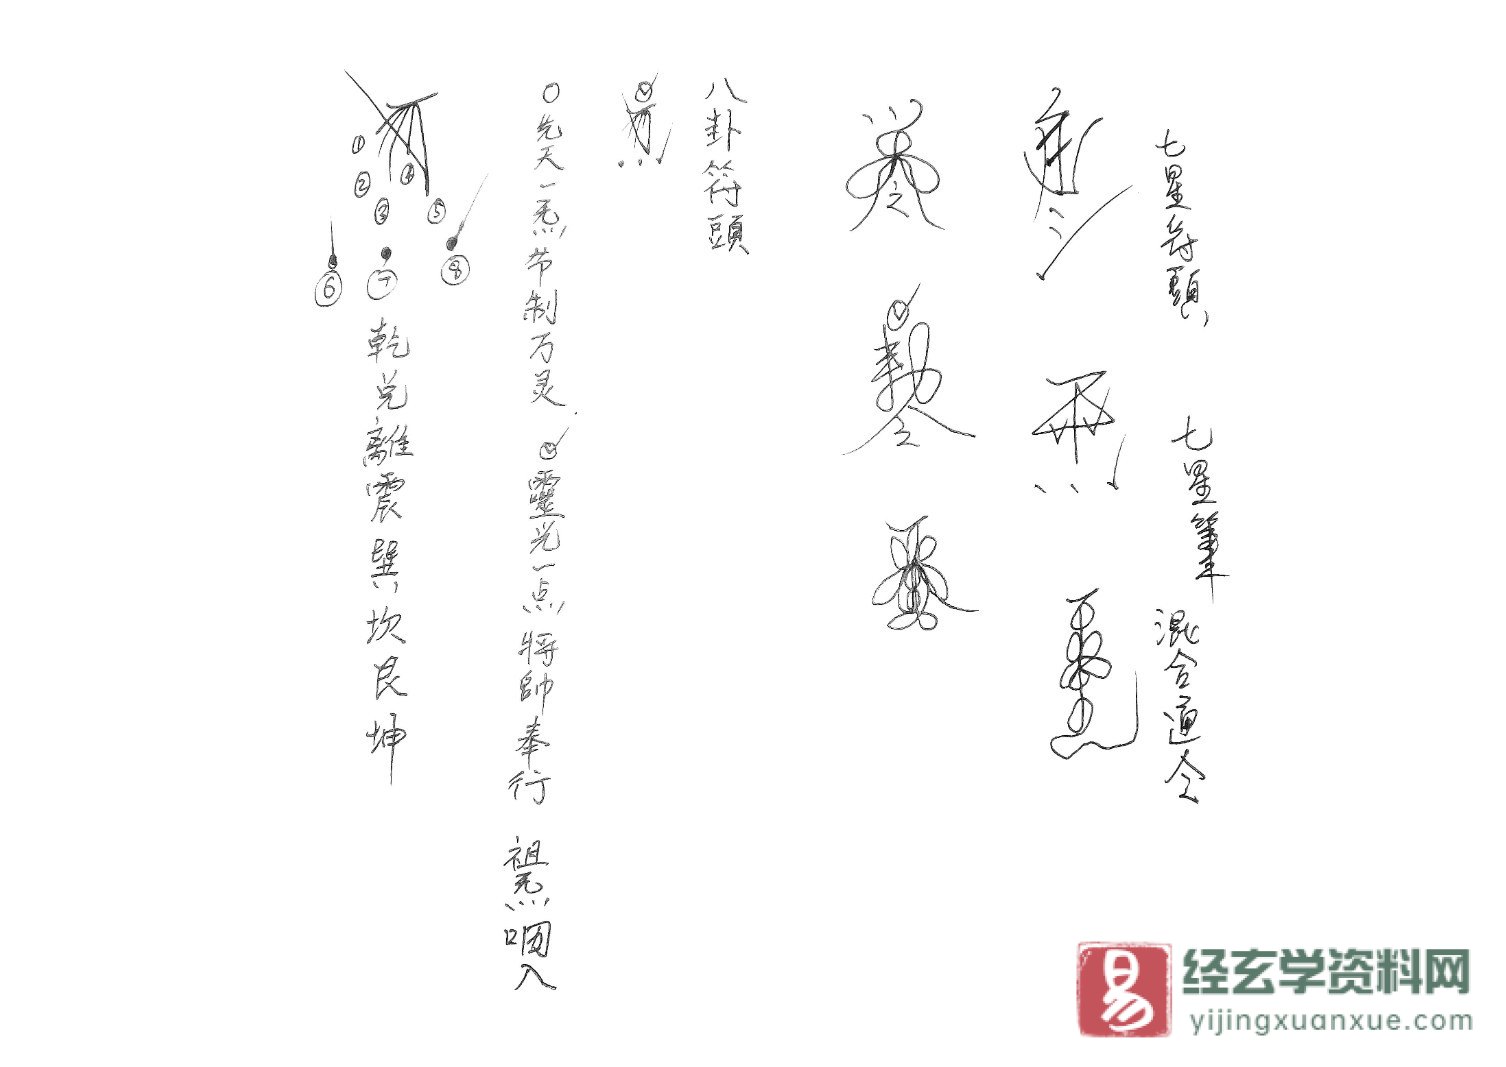 七星符頭
七星筆
混合道令
八卦符頭
〇先天一炁节制万灵
靈光一点将帥奉行
祖炁咽入
①
②
③
④
⑤
⑥
⑦
⑧
乾兌離震巽坎艮坤
易
经玄学资料网
yijingxuanxue.com